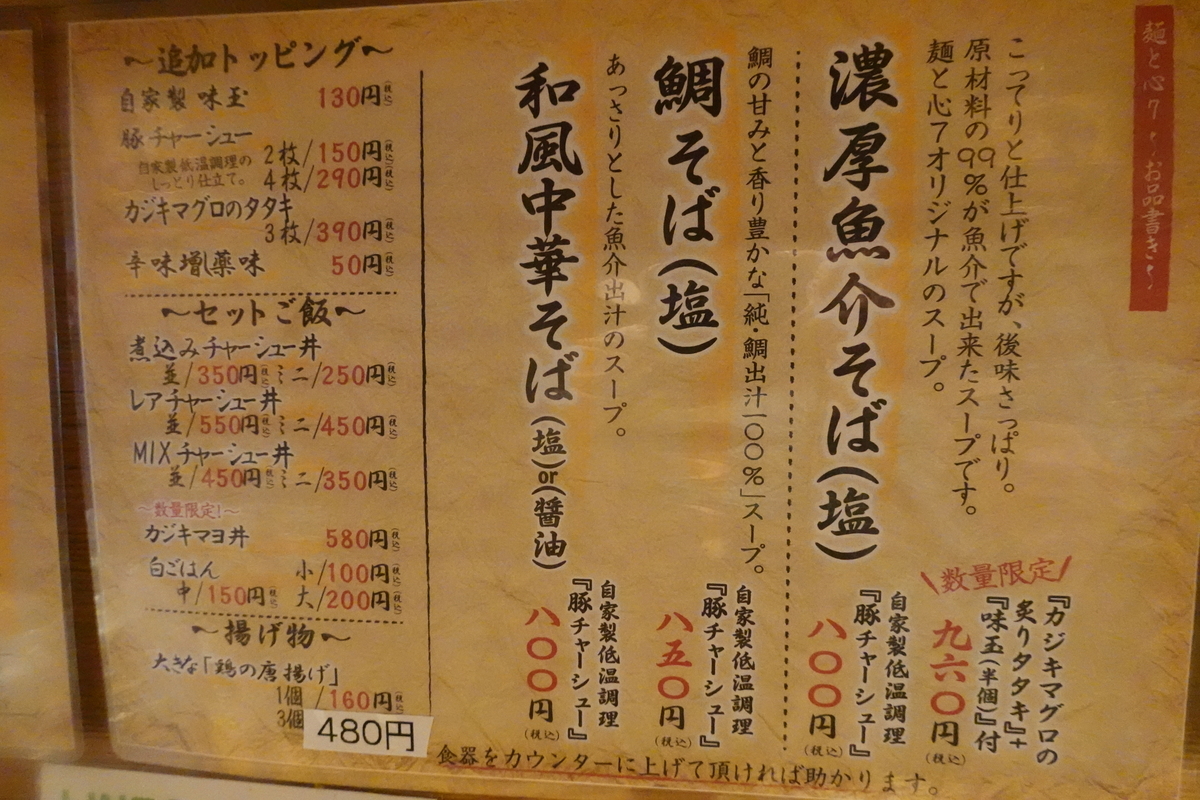 麺と心7〜お品書き〜
こってりと仕上げですが、後味さっぱり。
原材料の99%が魚介で出来たスープです。
麺と心7オリジナルのスープ。
濃厚魚介そば(塩)
数量限定
『カジキマグロの
炙りタタキ』+
『味玉(半個)』付
九六〇円(税込)
自家製低温調理
『豚チャーシュー』
八〇〇円(税込)
鯛の甘みと香り豊かな「純・鯛出汁一〇〇%」スープ。
鯛そば(塩)
自家製低温調理
『豚チャーシュー』
八五〇円(税込)
あっさりとした魚介出汁のスープ。
和風中華そば(塩)or(醤油)
自家製低温調理
『豚チャーシュー』
八〇〇円(税込)
〜追加トッピング〜
自家製 味玉 130円(税込)
豚チャーシュー
自家製低温調理の
しっとり仕立て。
2枚/150円(税込)
4枚/290円(税込)
カジキマグロのタタキ
3枚/390円(税込)
辛味増し薬味 50円(税込)
〜セットご飯〜
煮込みチャーシュー丼
並/350円(税込) ミニ/250円(税込)
レアチャーシュー丼
並/550円(税込) ミニ/450円(税込)
MIXチャーシュー丼
並/450円(税込) ミニ/350円(税込)
〜数量限定!〜
カジキマヨ丼 580円(税込)
白ごはん 小/100円(税込)
中/150円(税込) 大/200円(税込)
〜揚げ物〜
大きな「鶏の唐揚げ」
1個/160円(税込)
3個 480円
食器をカウンターに上げて頂ければ助かります。